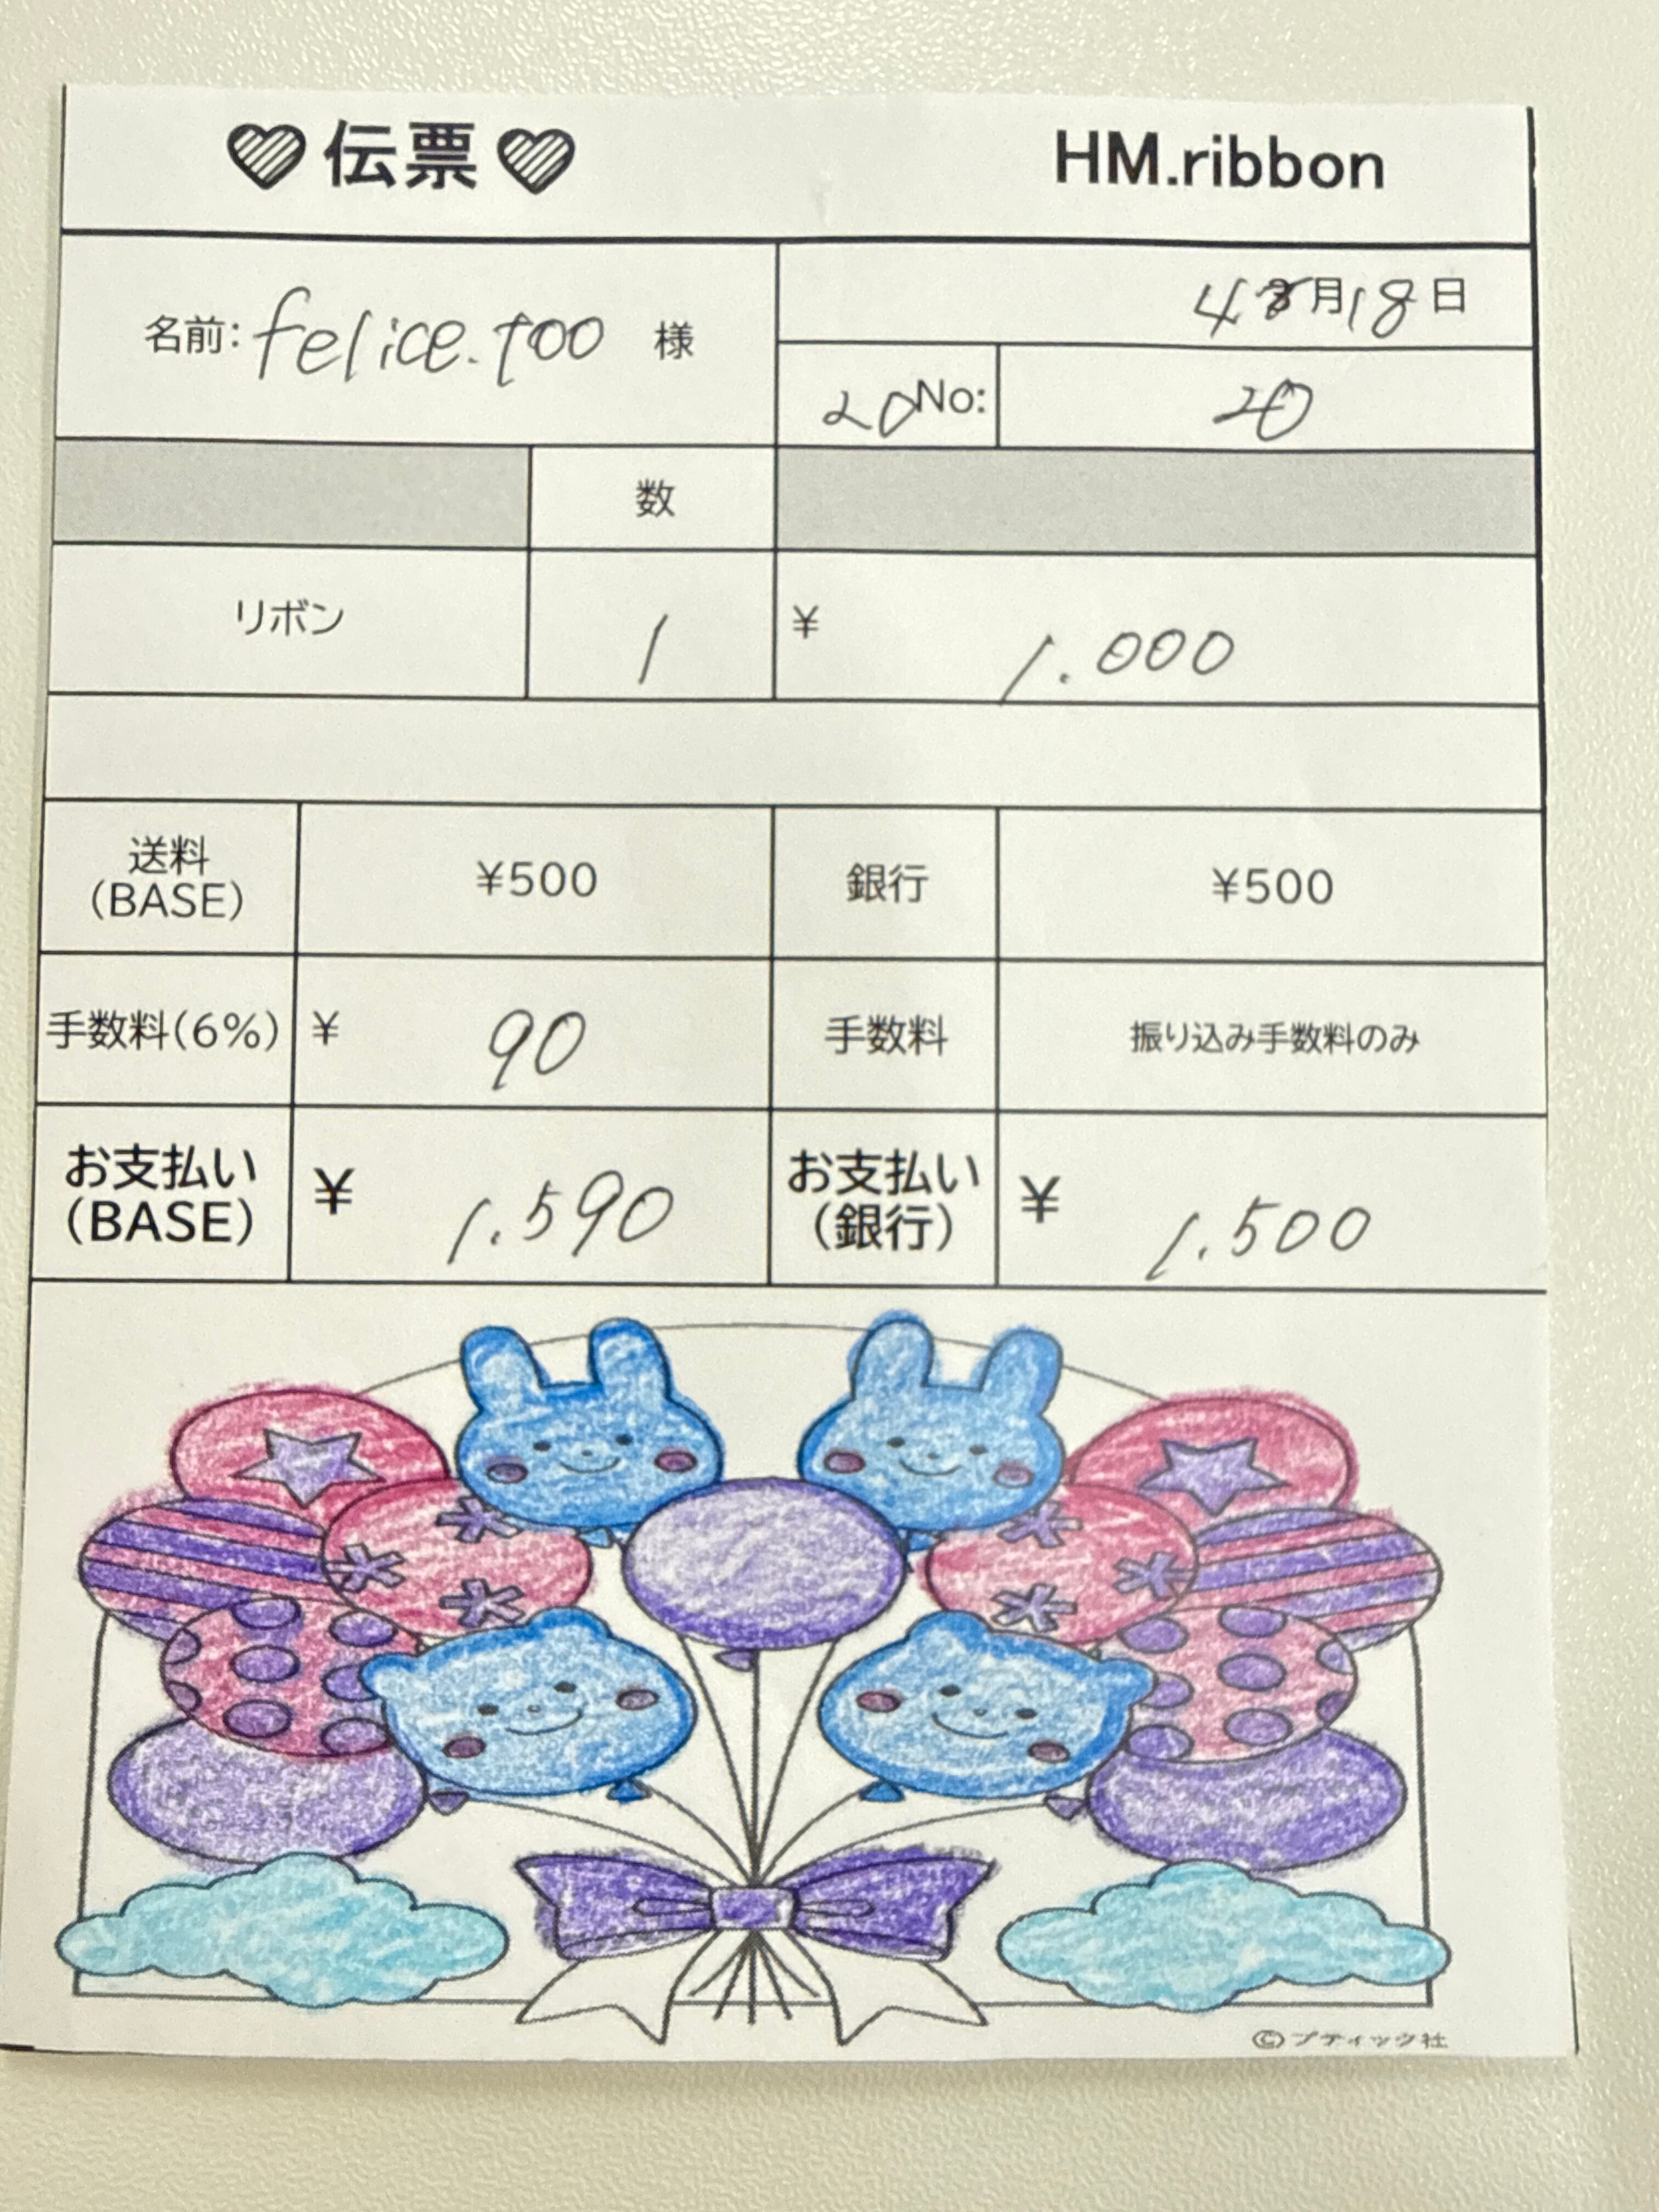 伝票 HM.ribbon
名前: felice.too 様
4 月 18 日
20 No: 20
数
リボン 1 ¥ 1.000
送料(BASE) ¥500 銀行 ¥500
手数料(6%) ¥ 90 手数料 振り込み手数料のみ
お支払い(BASE) ¥ 1.590 お支払い(銀行) ¥ 1.500
©ブティック社